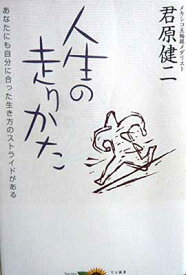 メキシコ五輪銀メダリスト
君原健二
人生の
走りかた
あなたにも自分に合った生き方のストライドがある